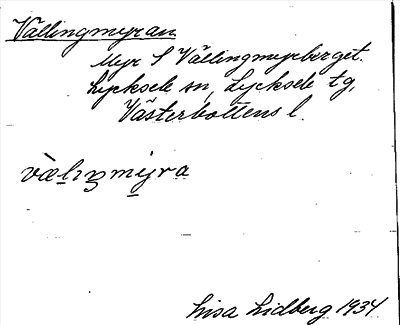 Vällingmyran
Myr S Vällingmyrberget.
Lycksele sn, Lycksele tg,
Västerbottens l.
væ̀lıŋmỳra
Lisa Lidberg 1934